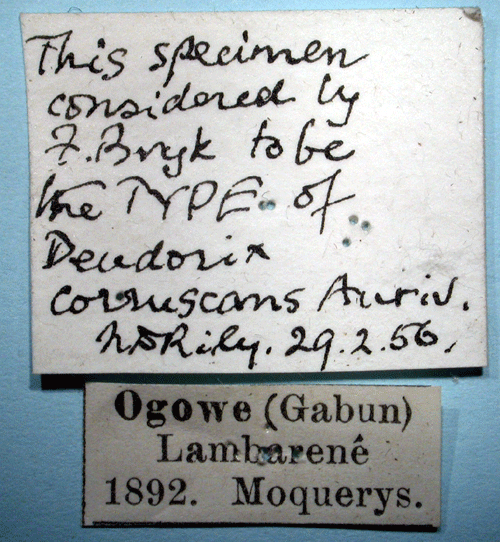 This specimen
considered by
F. Bryk to be
the TYPE of
Deudorix
corruscans Auriv.
N D Riley. 29.2.56.
Ogowe (Gabun)
Lambarenê
1892. Moquerys.